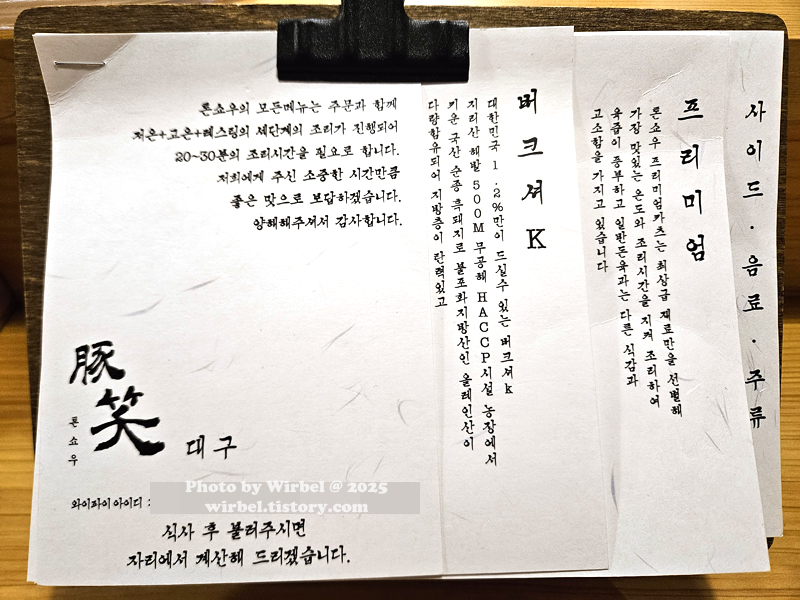 톤쇼우의 모든메뉴는 주문과 함께
저온+고온+레스팅의 세단계의 조리가 진행되어
20~30분의 조리시간을 필요로 합니다.
저희에게 주신 소중한 시간만큼
좋은 맛으로 보답하겠습니다.
양해해주셔서 감사합니다.
豚笑
톤쇼우
대구
와이파이 아이디 :
식사 후 불러주시면
자리에서 계산해 드리겠습니다.
버크셔K
대한민국 1.2%만이 드실수 있는 버크셔k
지리산 해발 500M 무공해 HACCP시설 농장에서
키운 국산 순종 흑돼지로 불포화지방산인 올레인산이
다량함유되어 지방층이 탄력있고
프리미엄
톤쇼우 프리미엄카츠는 최상급 재료만을 선별해
가장 맛있는 온도와 조리시간을 지켜 조리하여
육즙이 풍부하고 일반돈육과는 다른 식감과
고소함을 가지고 있습니다
사이드·음료·주류
Photo by Wirbel @ 2025
wirbel.tistory.com